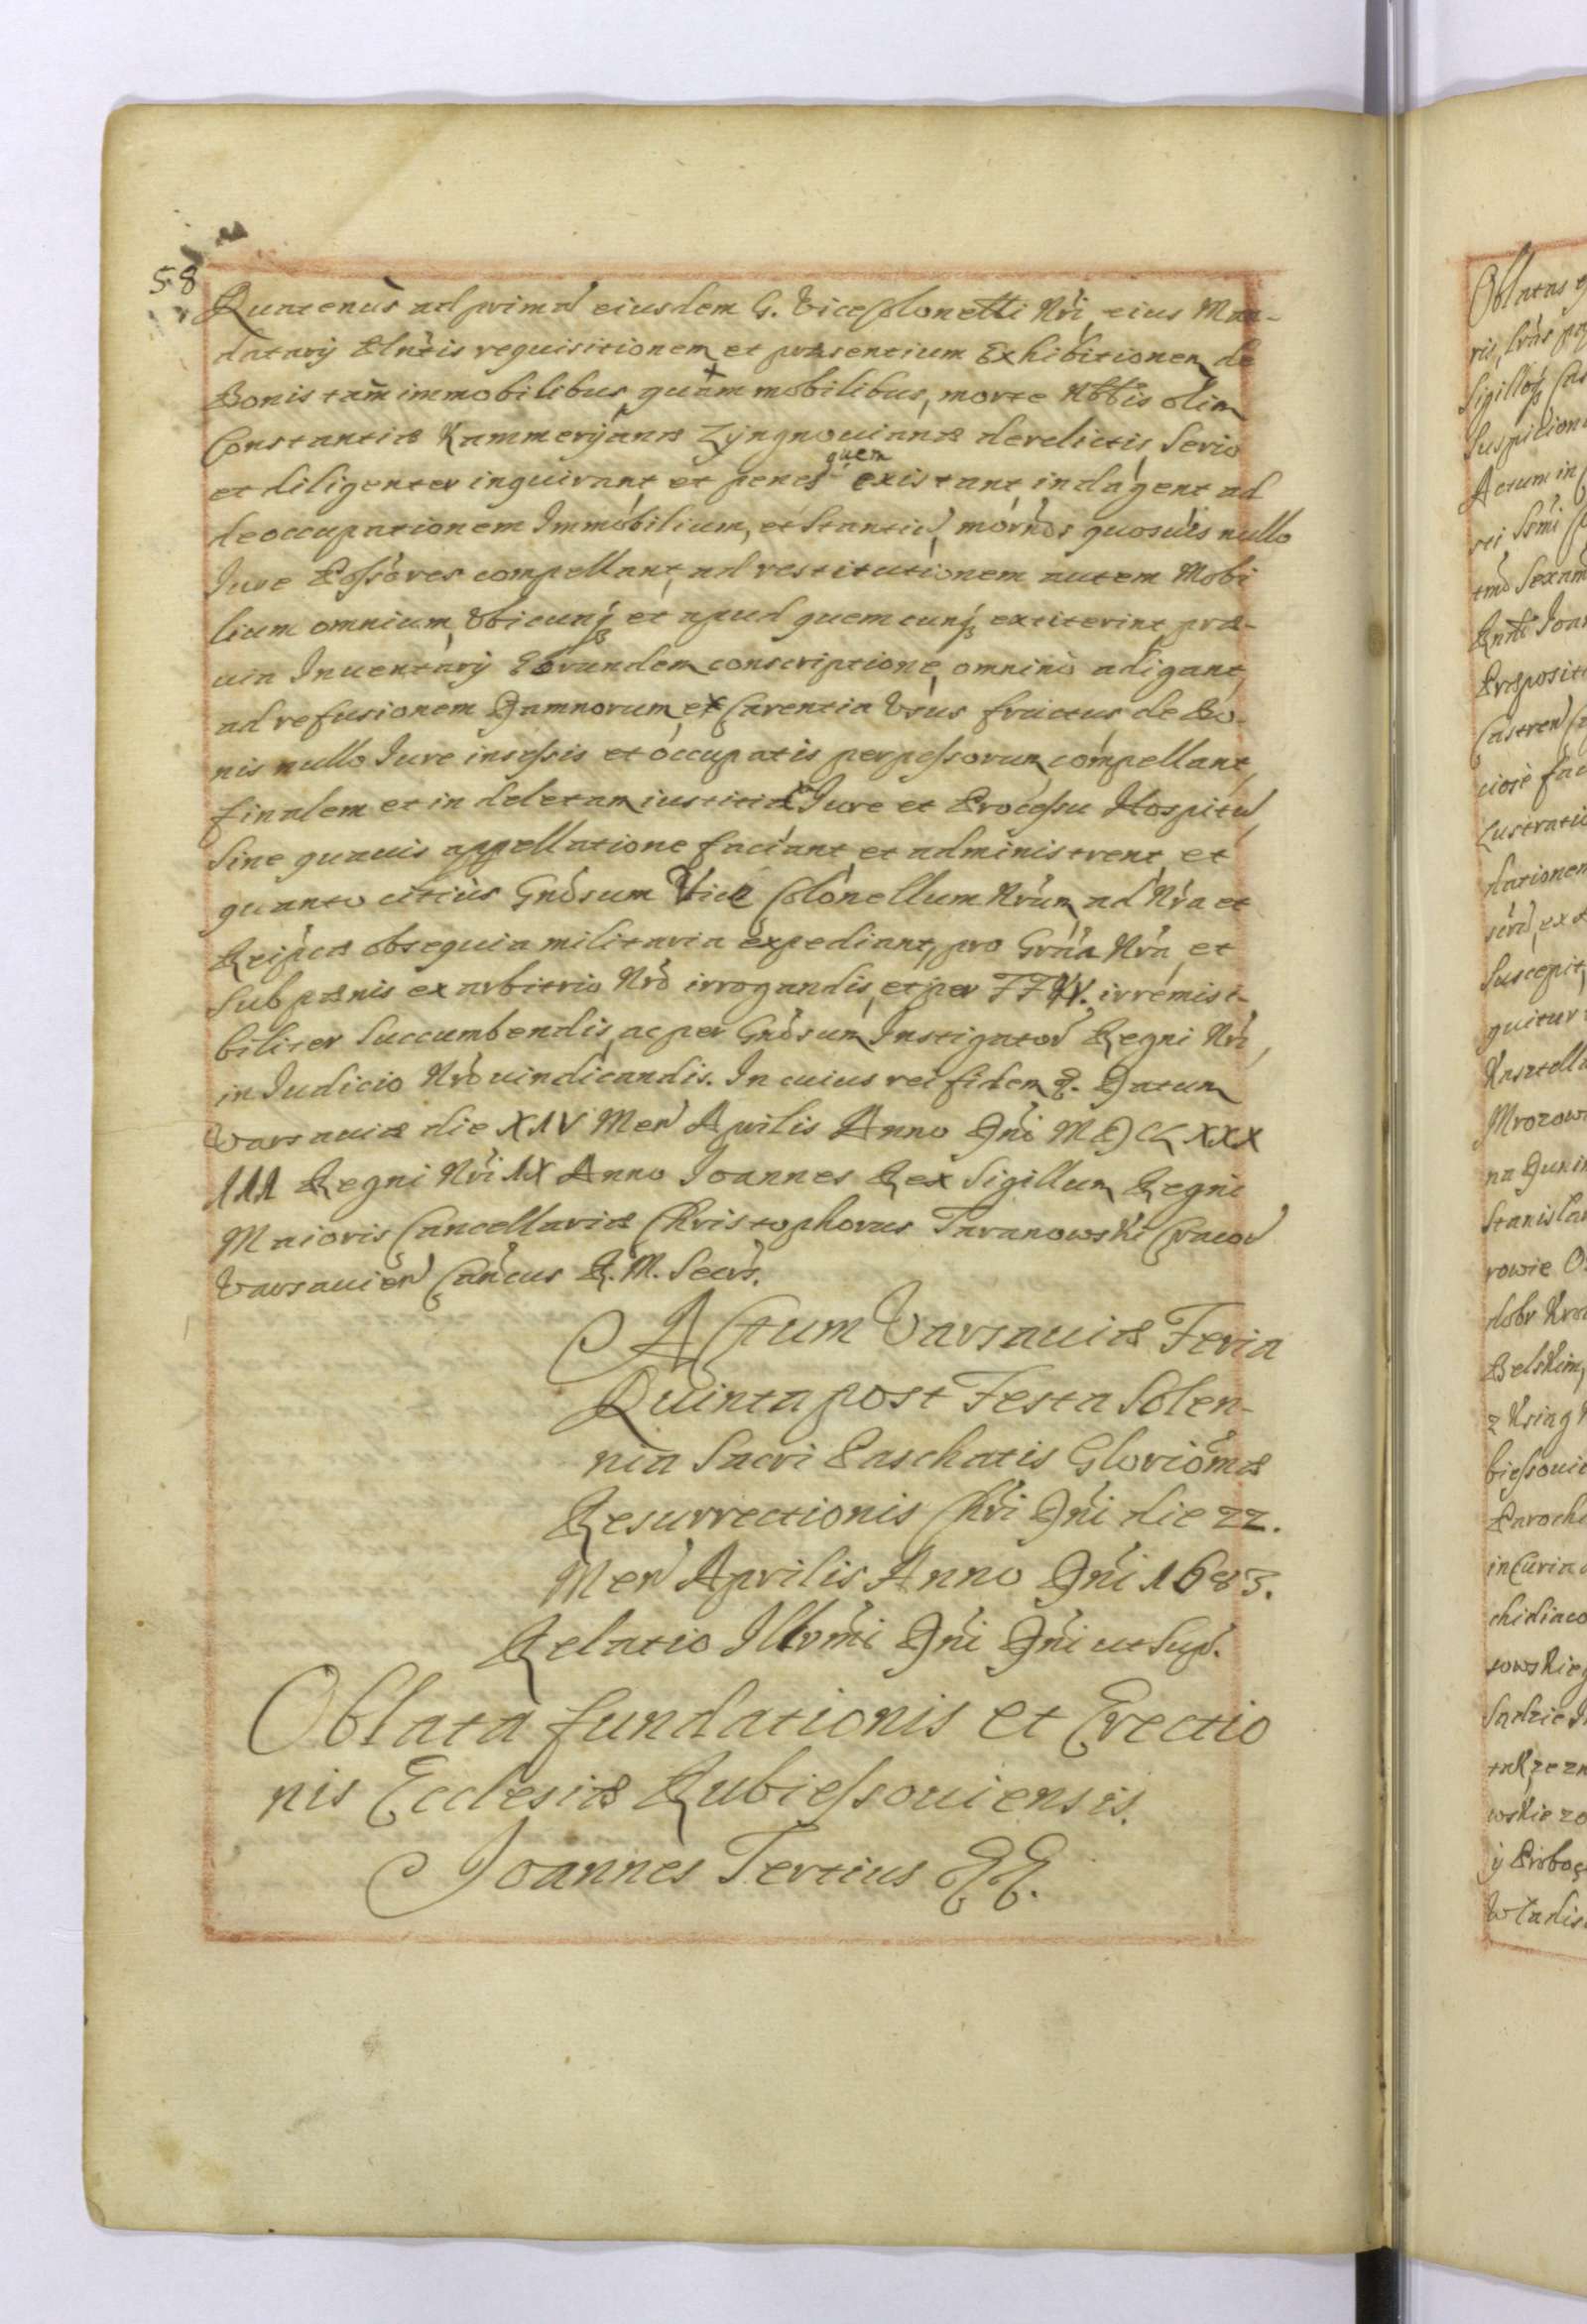 58
Quatenus ad primã eiusdem G. ViceColonelli Nri eius Man-
datarij Plntis requisitionem et præsentium Exhibitionem de
Bonis tam immobilibus, quàm mobilibus, morte Nblis olim
Constantiæ Kammeryana Zyngnouianæ derelictis Serio
et diligenter inquirant, et penes quem existant, indagent ad
deoccupationem Immobilium, et Stantiũ, mornos quosuis nullo
Jure Possores compellant, ad restitutionem autem Mobi
lium omnium, Vbicunq et apud quemcunq extiterint, præ-
uia Inuentarij Eorundem conscriptione, omnino adigant,
ad refusionem Damnorum, ex Carentia Vsus fructus de Bo-
nis nullo Jure insessis et occupatis perpessorum compellant,
finalem et indeletam iustitiã Jure et Processu Hospitũ,
Sine quauis appellatione faciant et administrent, et
quanto citius Gnosum Vice Colonellum Nrum ad Nra et
Reipcæ obsequia militaria expediant, pro Gratia Nra, et
sub pænis ex arbitrio Nro irrogandis, et per FFVV. irremissi-
biliter Succumbendis, ac per Gnosum Instigator Regni Nri,
in Judicio Nro uindicandis. In cuius rei fidem &. Datum
Varsauiæ die XIV Men Aprilis Anno Dni MDCLXXX
III Regni Nri IX Anno Joannes Rex Sigillum Regni
Maioris Cancellariæ Christophorus Taranowski Cracou
Varsauien Cancus R. M. Secrs.
Actum Varsauiæ Feria
Quinta post Festa Solen-
nia Sacri Paschatis Gloriomæ
Resurrectionis Chri Dni die 22.
Men Aprilis Anno Dni 1683.
Relatio Illrmi Dni Dni ut Sup.
Oblata fundationis et Erectio
nis Ecclesiæ Rubiessouiensis.
Joannes Tertius &&.
Oblatas
Sigilloq
Suspicion
Actum in
Præposit
Castren
Lustrati
dationem
Suscepit
quitur
Kasztell
Mrozow
Stanisla
rowie
dobr
Belskim,
z Ksiag
Paroch
in Curia
chidiaco
towskieg
Wladis